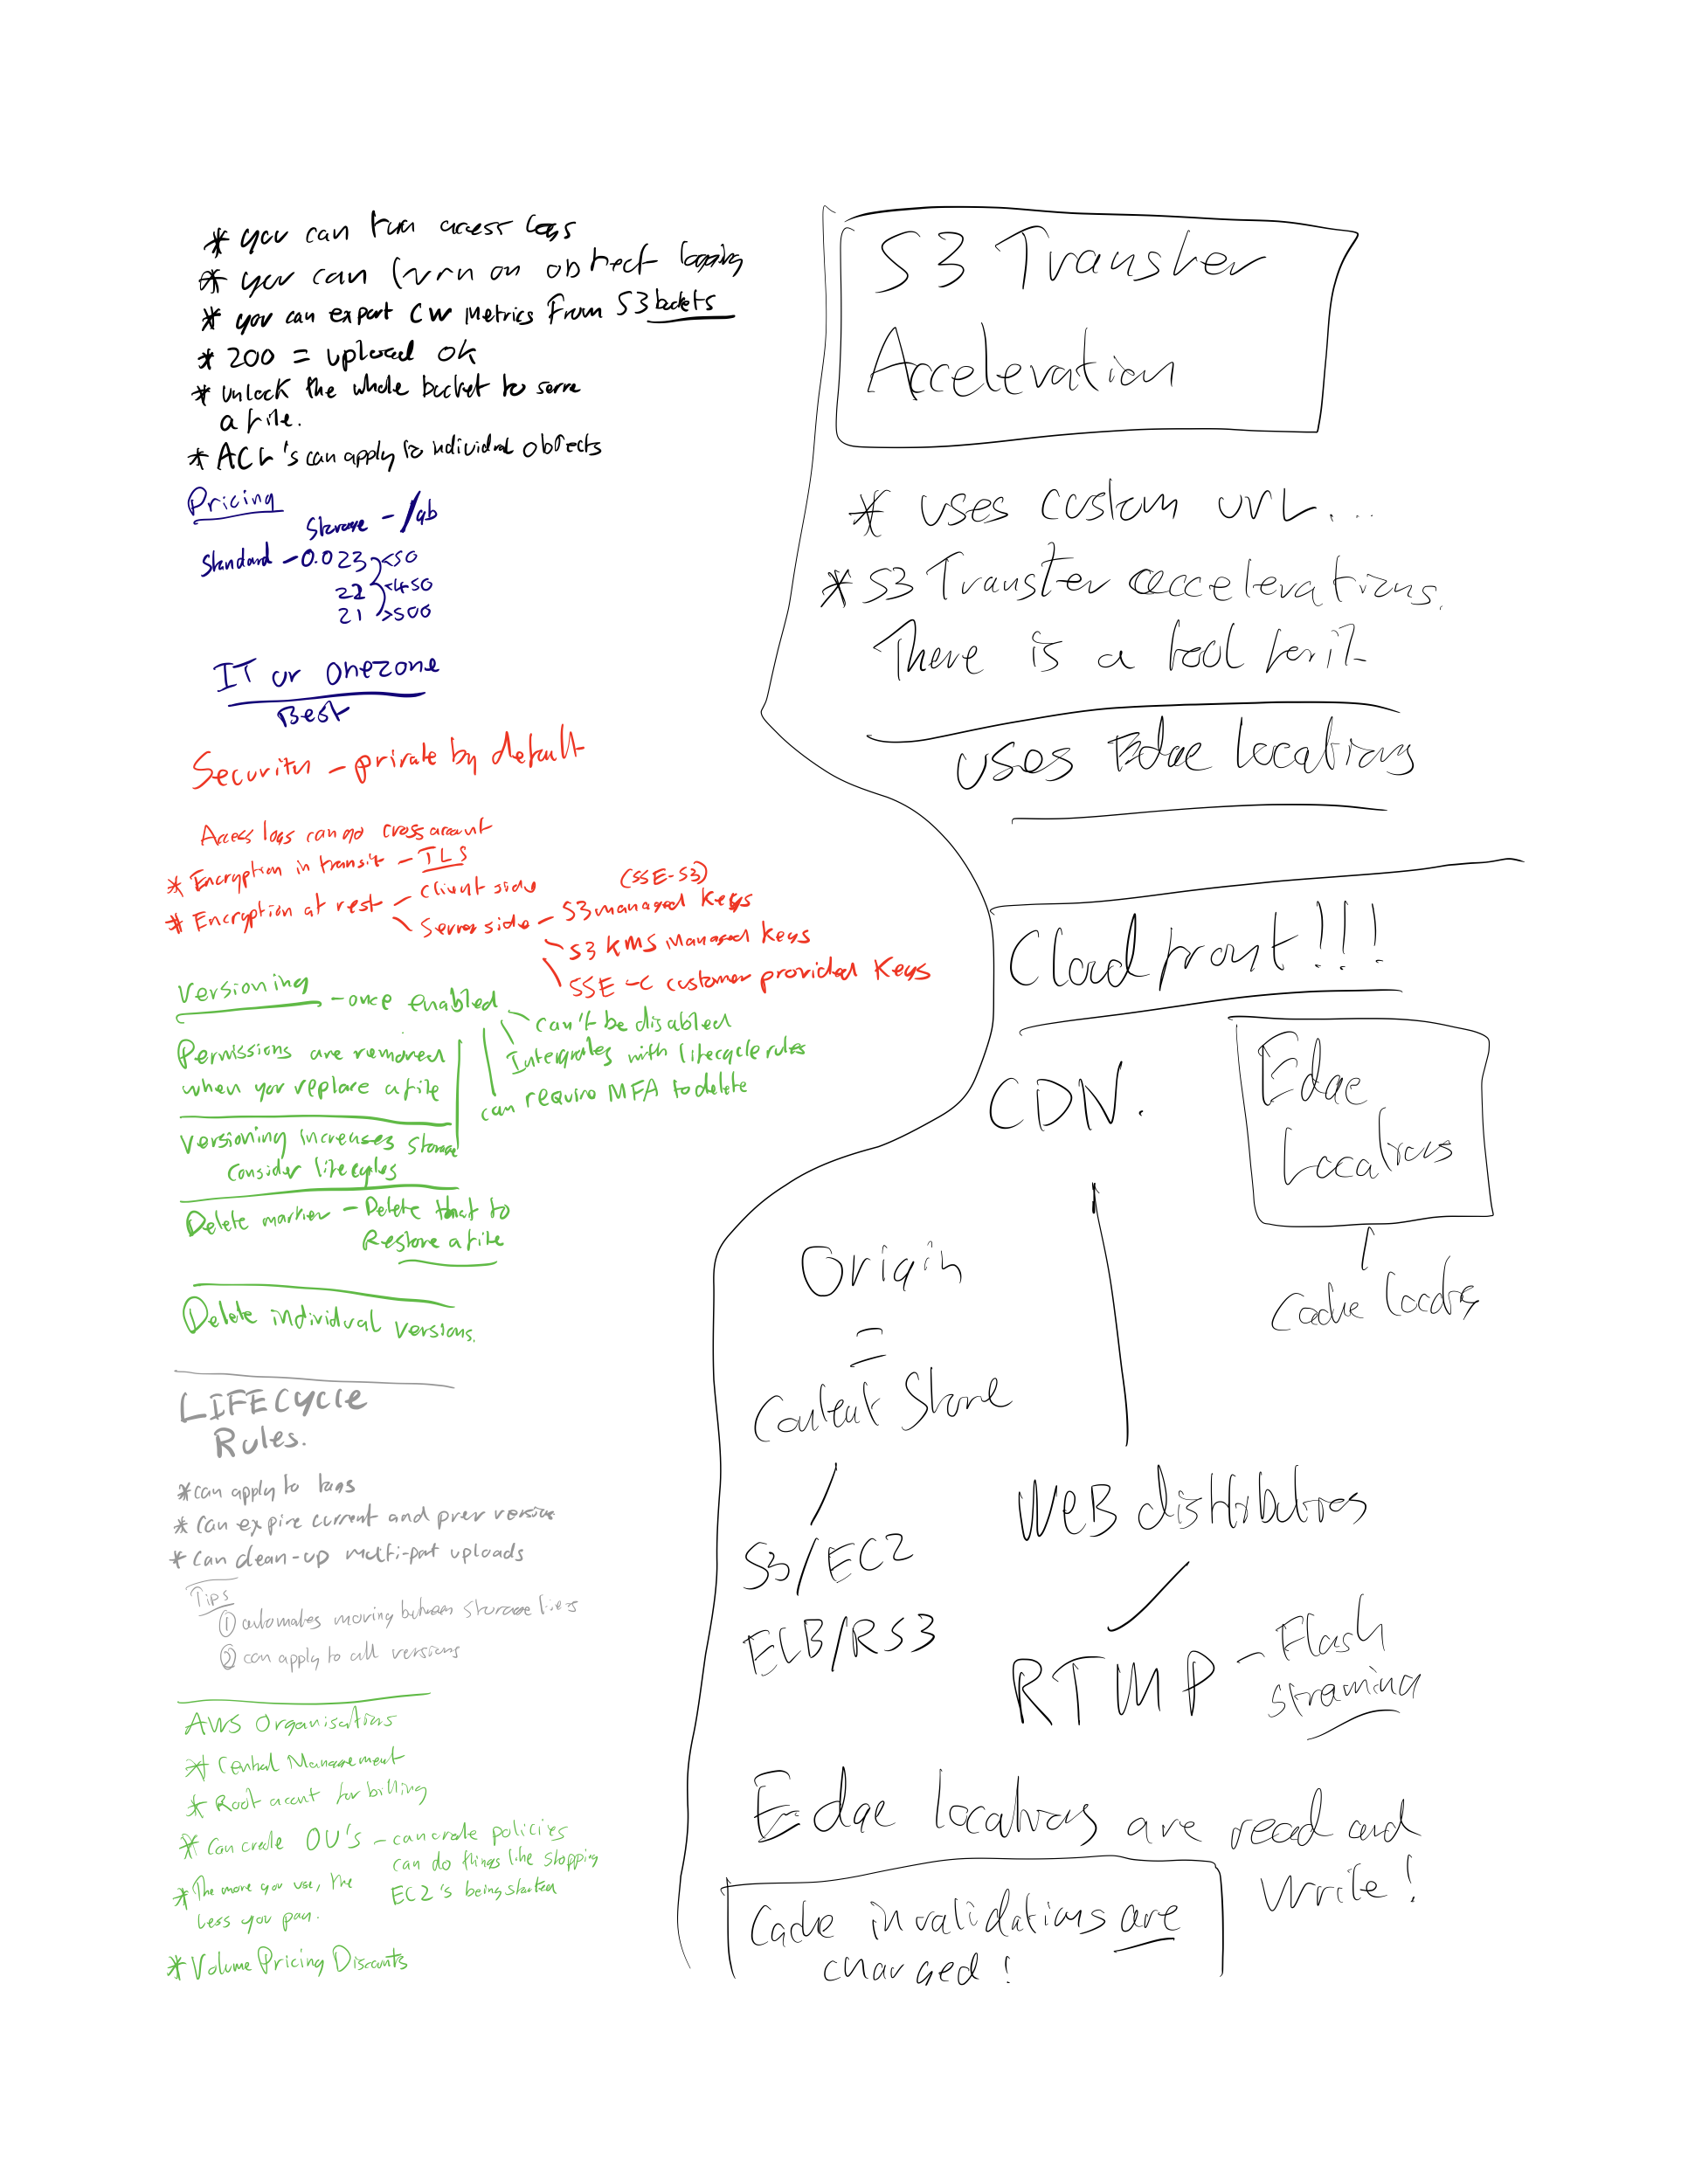 * you can turn access logs
* you can turn on object logging
* you can export CW Metrics From S3 buckets
* 200 = upload ok
* Unlock the whole bucket to serve
a file.
* ACL's can apply to individual objects
Pricing
Storage - /gb
Standard - 0.023 <50
22 <450
21 >500
IT or Onezone
Best
Security - private by default
Access logs can go cross account
* Encryption in transit - TLS
* Encryption at rest - client side
(SSE-S3)
Server side - S3 managed Keys
S3 KMS Managed Keys
SSE-C customer provided Keys
Versioning - once enabled
can't be disabled
Integrates with lifecycle rules
can require MFA to delete
Permissions are removed
when you replace a file
Versioning increases storage
Consider lifecycles
Delete marker - Delete that to
Restore a file
Delete individual versions.
LIFECYCLE
Rules.
* can apply to tags
* can expire current and prev versions
* can clean-up multi-part uploads
Tips
① automates moving between storage tiers
② can apply to all versions
AWS Organisations
* Central Management
* Root account for billing
* Can create OU's - can create policies
can do things like stopping
EC2's being started
* The more you use, the
less you pay.
* Volume Pricing Discounts
S3 Transfer
Acceleration
* uses custom URL...
* S3 Transfer accelerations.
There is a tool for it
uses Edge locations
Cloudfront!!!
CDN.
Edge
Locations
Cache locations
Origin
=
Content Store
S3/EC2
ELB/RS3
WEB distributions
RTMP - Flash
streaming
Edge locations are read and
write!
Cache invalidations are
charged!